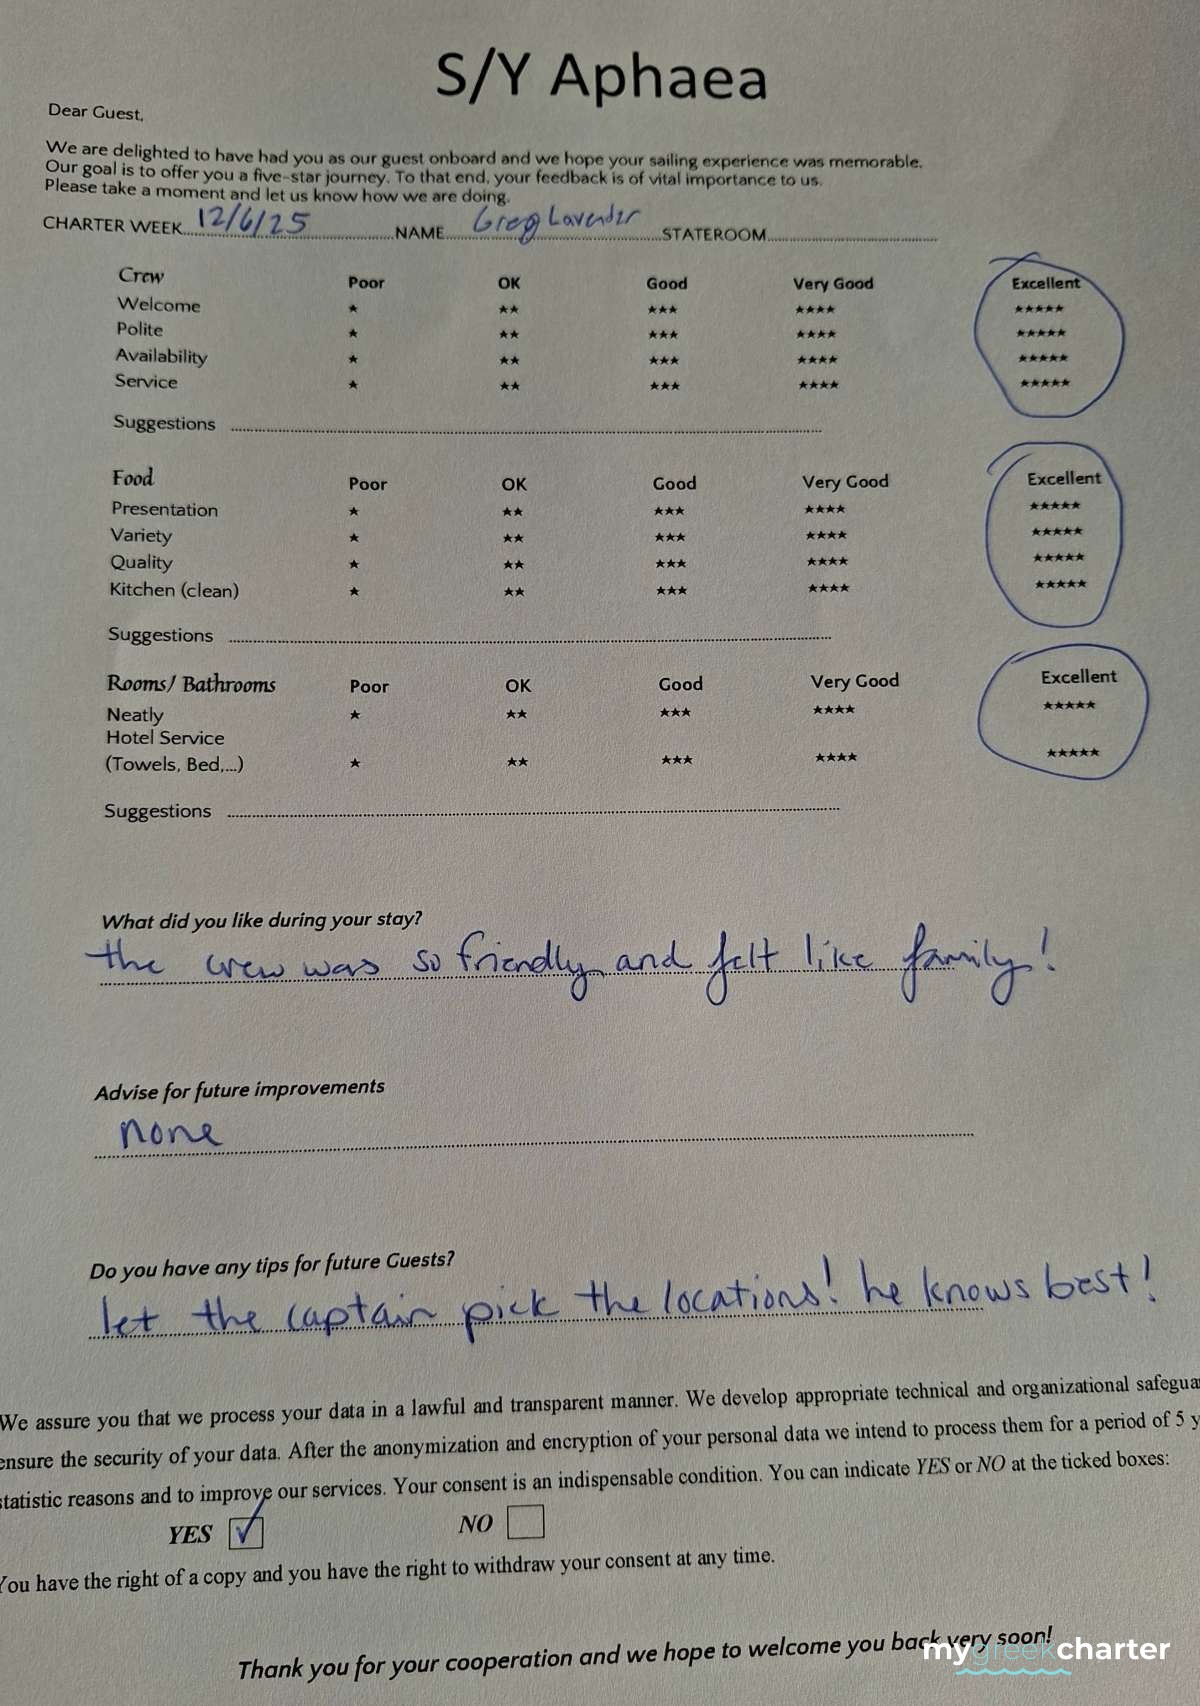 S/Y Aphaea
Dear Guest,
We are delighted to have had you as our guest onboard and we hope your sailing experience was memorable.
Our goal is to offer you a five-star journey. To that end, your feedback is of vital importance to us.
Please take a moment and let us know how we are doing.
CHARTER WEEK 12/6/25 NAME Greg Lavender STATEROOM
Crew Poor OK Good Very Good Excellent
Welcome ★ ★★ ★★★ ★★★★ ★★★★★
Polite ★ ★★ ★★★ ★★★★ ★★★★★
Availability ★ ★★ ★★★ ★★★★ ★★★★★
Service ★ ★★ ★★★ ★★★★ ★★★★★
Suggestions
Food Poor OK Good Very Good Excellent
Presentation ★ ★★ ★★★ ★★★★ ★★★★★
Variety ★ ★★ ★★★ ★★★★ ★★★★★
Quality ★ ★★ ★★★ ★★★★ ★★★★★
Kitchen (clean) ★ ★★ ★★★ ★★★★ ★★★★★
Suggestions
Rooms/ Bathrooms Poor OK Good Very Good Excellent
Neatly ★ ★★ ★★★ ★★★★ ★★★★★
Hotel Service
(Towels, Bed,...) ★ ★★ ★★★ ★★★★ ★★★★★
Suggestions
What did you like during your stay?
the crew was so friendly and felt like family!
Advise for future improvements
none
Do you have any tips for future Guests?
let the captain pick the locations! he knows best!
We assure you that we process your data in a lawful and transparent manner. We develop appropriate technical and organizational safegua
ensure the security of your data. After the anonymization and encryption of your personal data we intend to process them for a period of 5 y
statistic reasons and to improve our services. Your consent is an indispensable condition. You can indicate YES or NO at the ticked boxes:
YES ✓ NO
You have the right of a copy and you have the right to withdraw your consent at any time.
Thank you for your cooperation and we hope to welcome you back very soon!
mygreekcharter